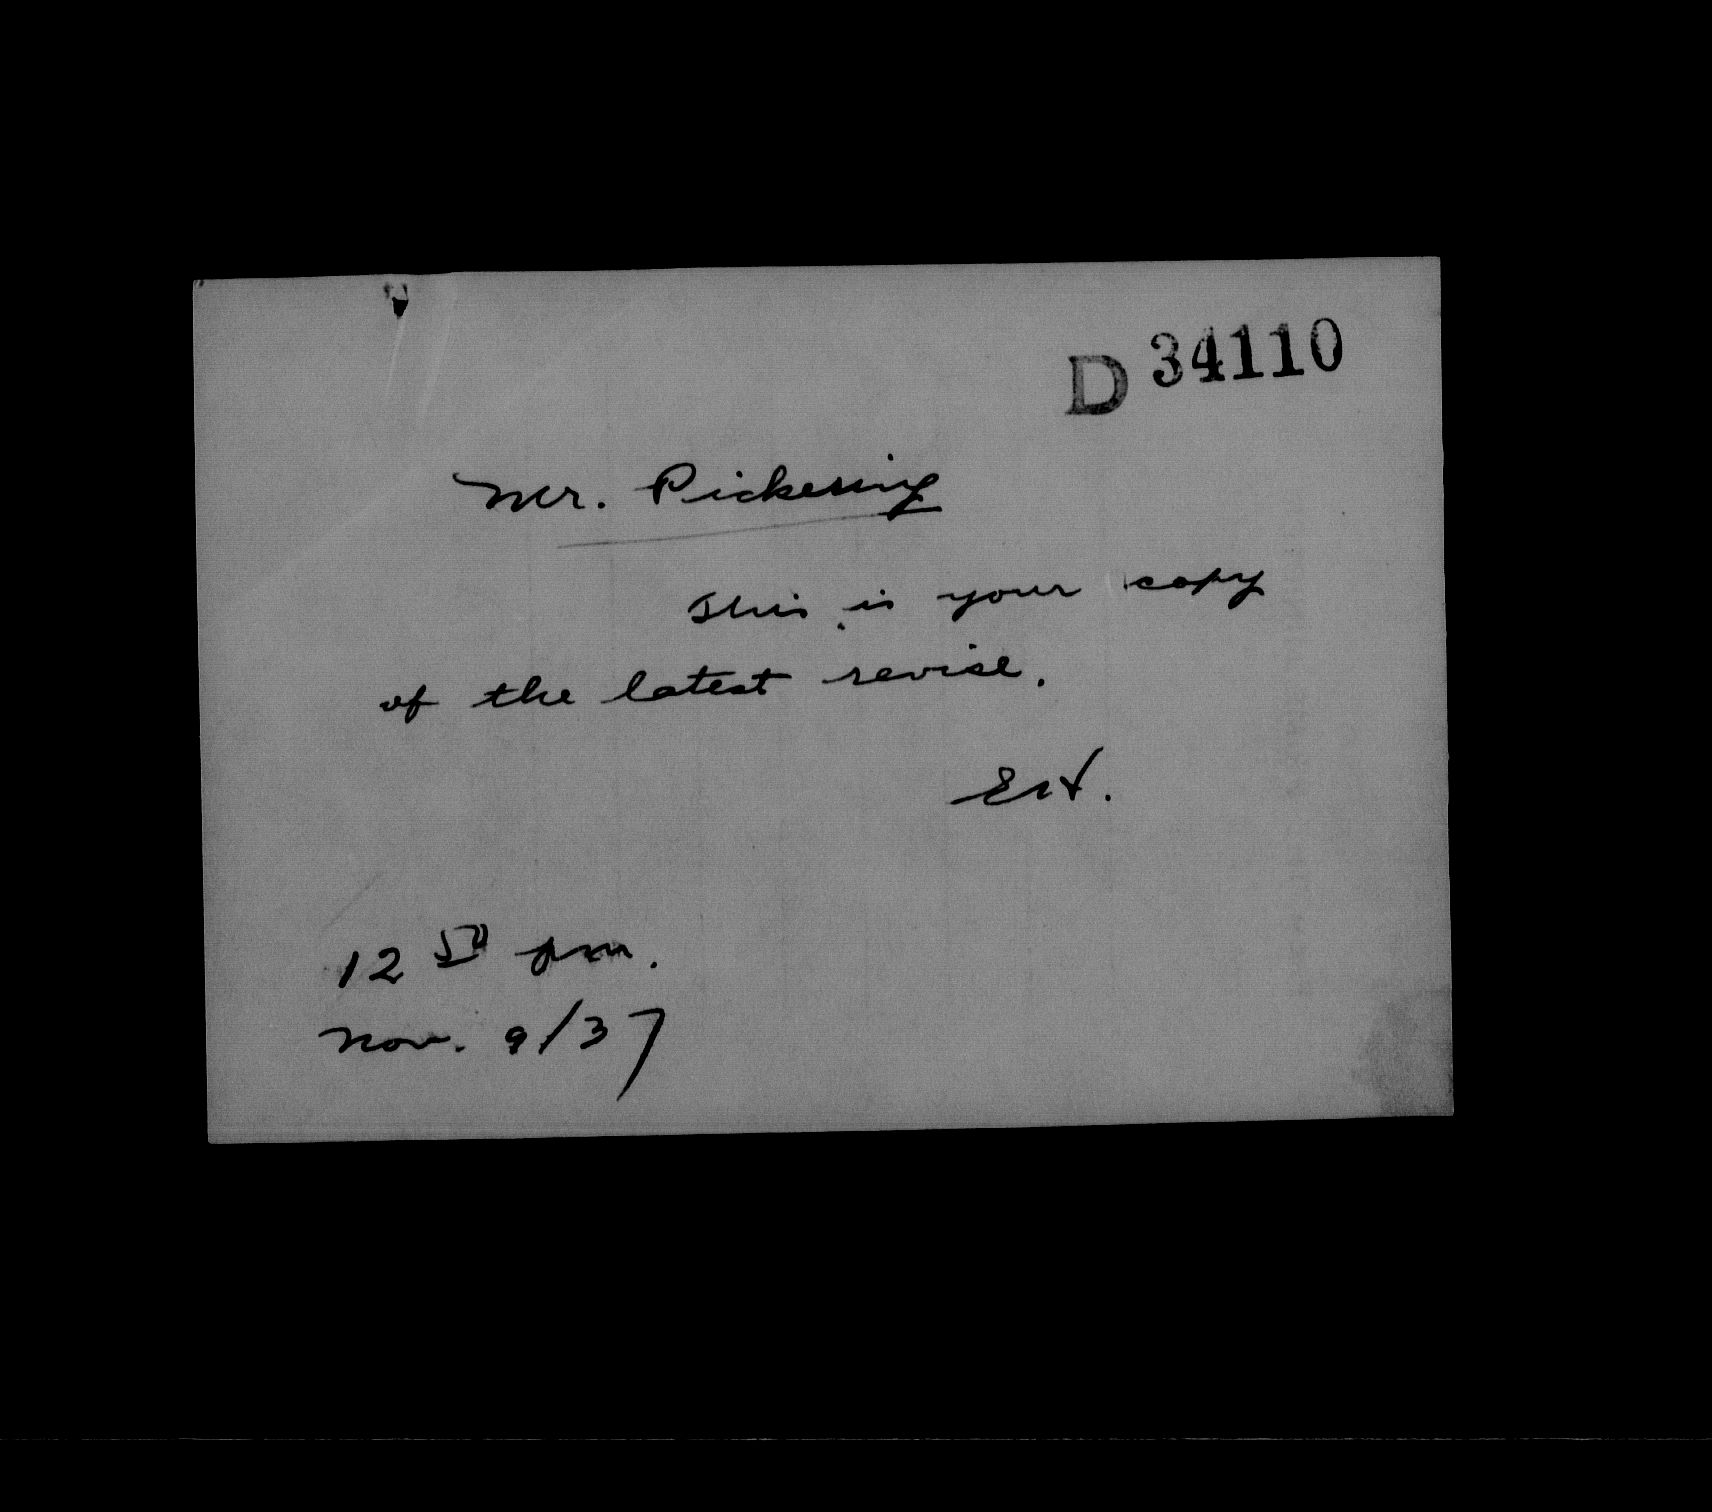 D 34110
Mr. Pickering
This is your copy
of the latest revise.
12 50 pm.
Nov. 9/37